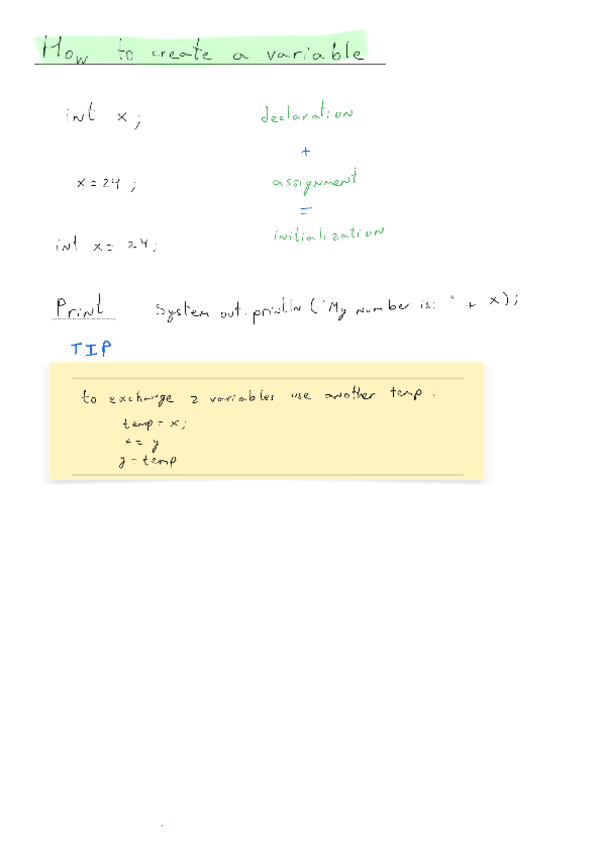 How to create a variable
int x ; declaration
+
x = 24 ; assignment
=
int x = 24 ; initialization
Print System.out.println ("My number is: " + x);
TIP
to exchange 2 variables use another temp.
temp = x;
x = y
y = temp